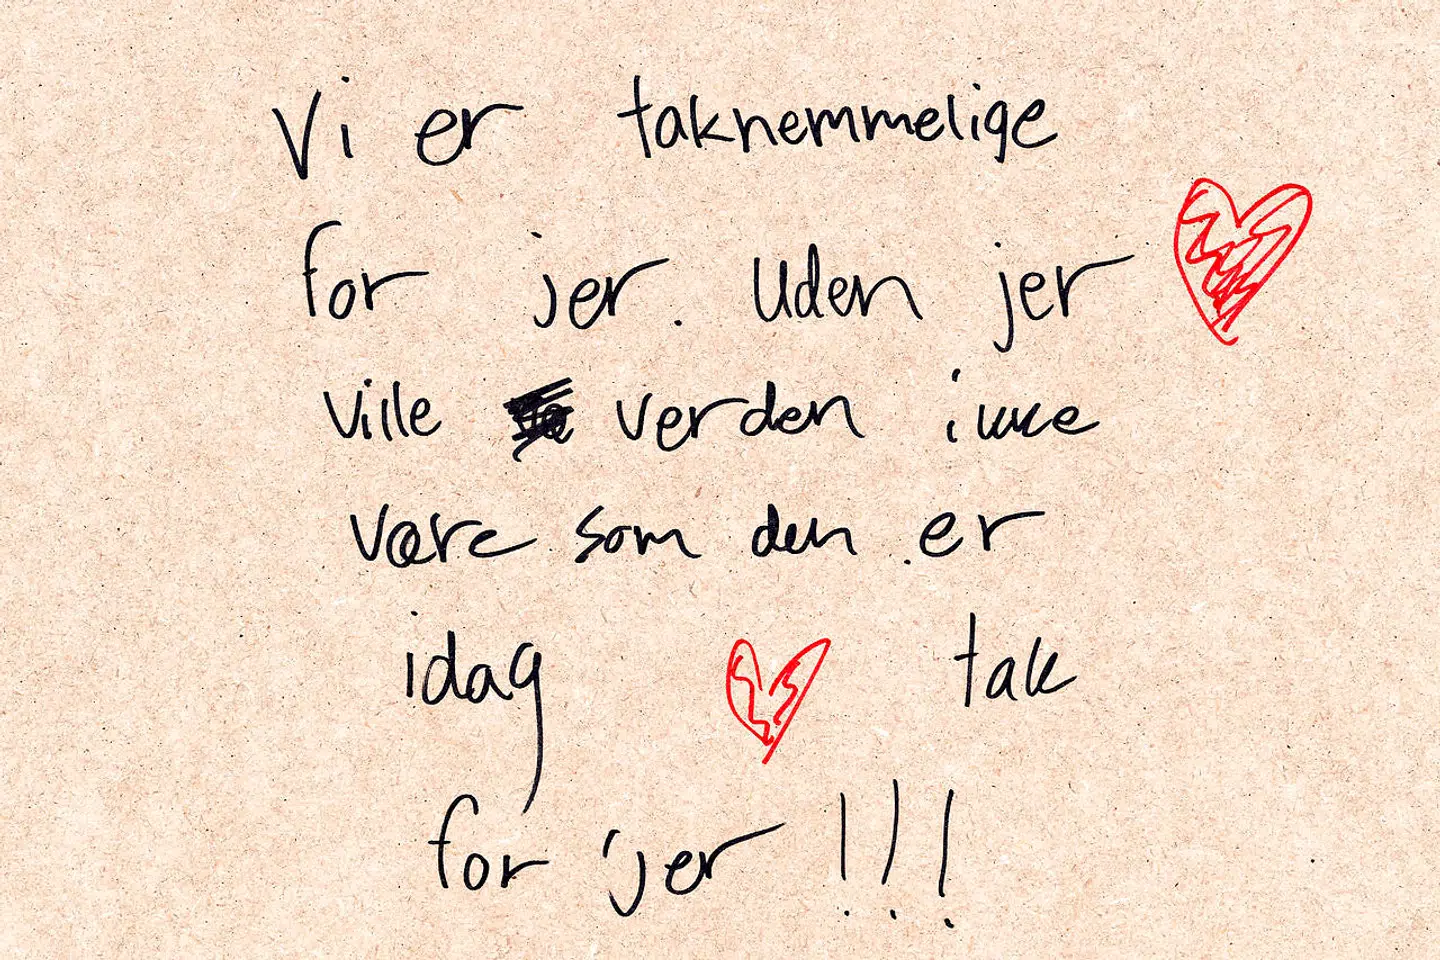 Vi er taknemmelige
for jer. Uden jer
ville verden ikke
være som den er
idag tak
for jer !!!